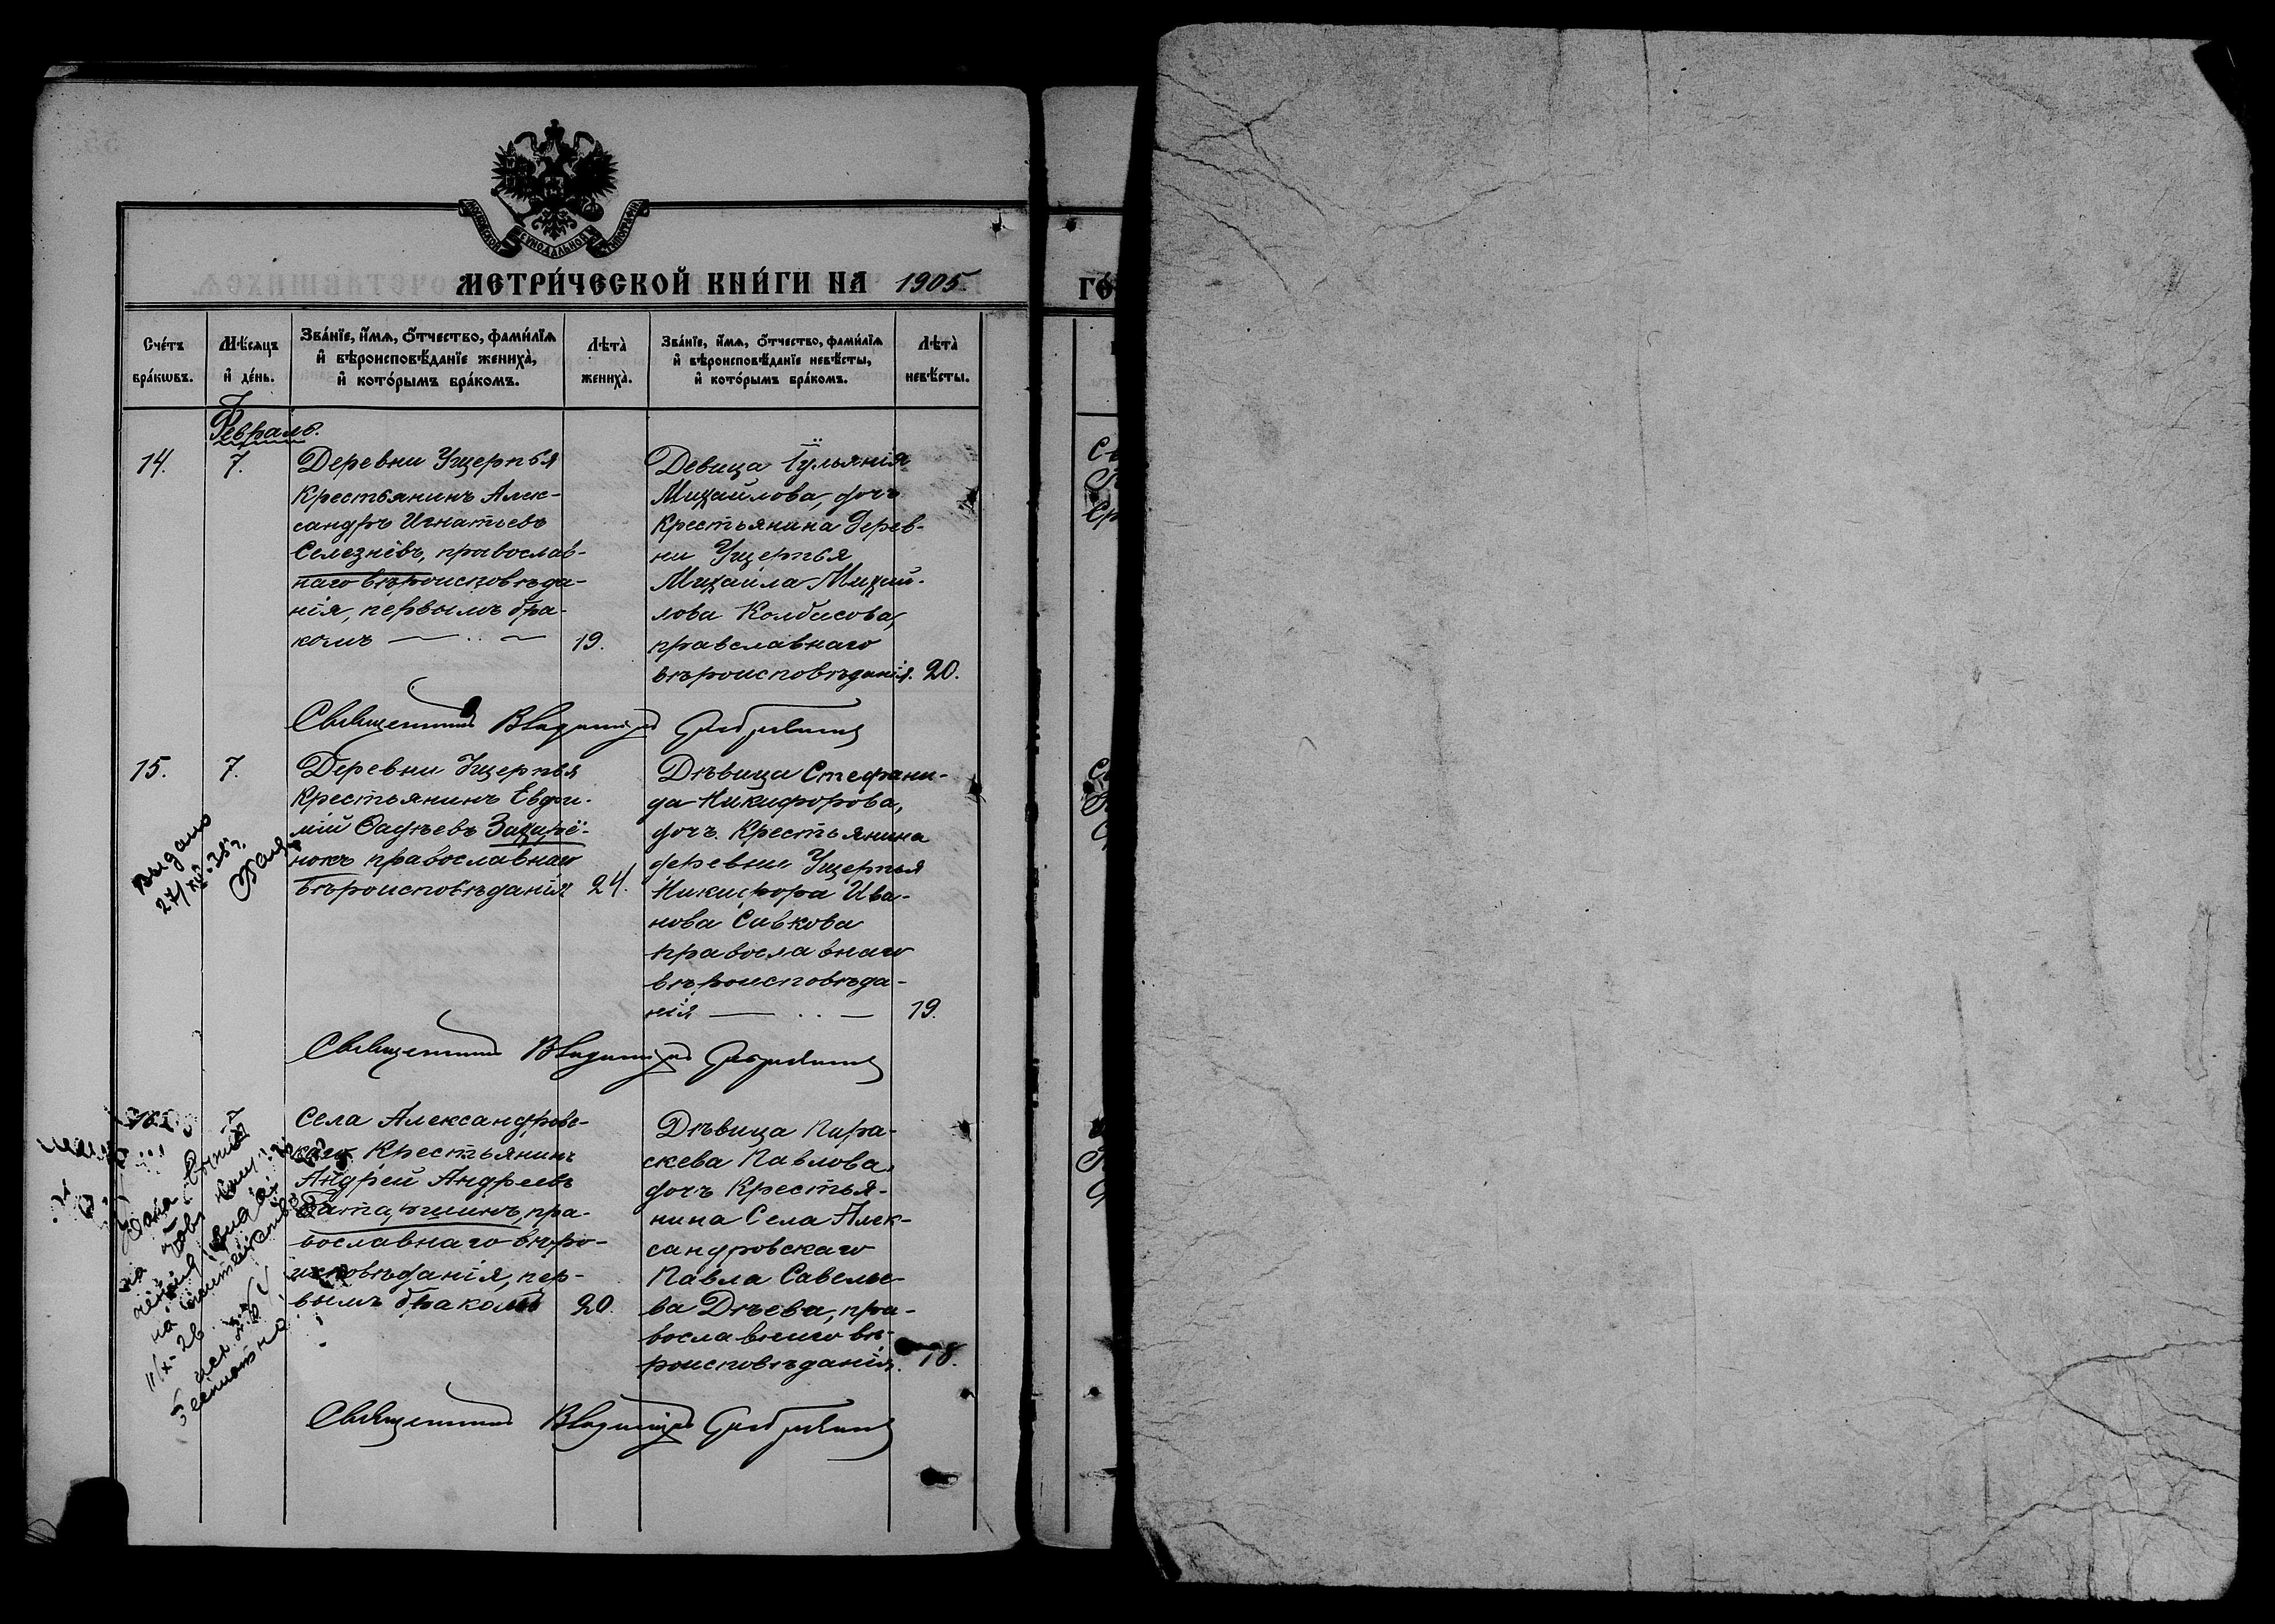 МОСКОВСКОЙ СѴНОДАЛЬНОЙ ТИПОГРАФІИ
МЕТРИ́ЧЕСКОЙ КНИ́ГИ НА 1905.
ГО́
Сче́тъ бра́кѡвъ.
Мѣ́сяцъ и҆ де́нь.
Зва́нїе, и҆́мѧ, ѻ҆́тчество, фами́лїѧ
и҆ вѣроисповѣ́данїе жениха̀,
и҆ кото́рымъ бра́комъ.
Лѣта̀ жениха̀.
Зва́нїе, и҆́мѧ, ѻ҆́тчество, фами́лїѧ
и҆ вѣроисповѣ́данїе невѣ́сты,
и҆ кото́рымъ бра́комъ.
Лѣта̀ невѣ́сты.
Февраль.
14.
7.
Деревни Ущерпья
Крестьянинъ Алек-
сандръ Игнатьевъ
Селезнёвъ, православ-
наго вѣроисповѣда-
нія, первымъ бра-
комъ — .. — 19.
Девица Іульянія
Михайлова, дочь
Крестьянина Дерев-
ни Ущерпья
Михаила Михай-
лова Колбасова,
правславнаго
вѣроисповѣданія. 20.
Священникъ Владиміръ
15.
7.
Деревни Ущерпья
Крестьянинъ Евфи-
мій Фадѣевъ
нокъ православнаго
вѣроисповѣданія 24.
Дѣвица Стефани-
да Никифорова,
дочь Крестьянина
деревни Ущерпья
Никифора Ива-
нова Сивкова
православнаго
вѣроисповѣда-
нія — .. — 19.
Выдано
27/XII 35 г.
Священникъ Владиміръ
16
7
Села Александровс-
каго Крестьянинъ
Андрей Андреевъ
пра-
вославнаго вѣро-
исповѣданія, пер-
вымъ бракомъ 20.
Дѣвица Пара-
скева Павлова,
дочь Крестья-
нина Села Алек-
сандровскаго
Павла Савелье-
ва Дѣева, пра-
вославнаго вѣ-
роисповѣданія. 18.
Дана
на
на
11/X-26
Священникъ Владиміръ